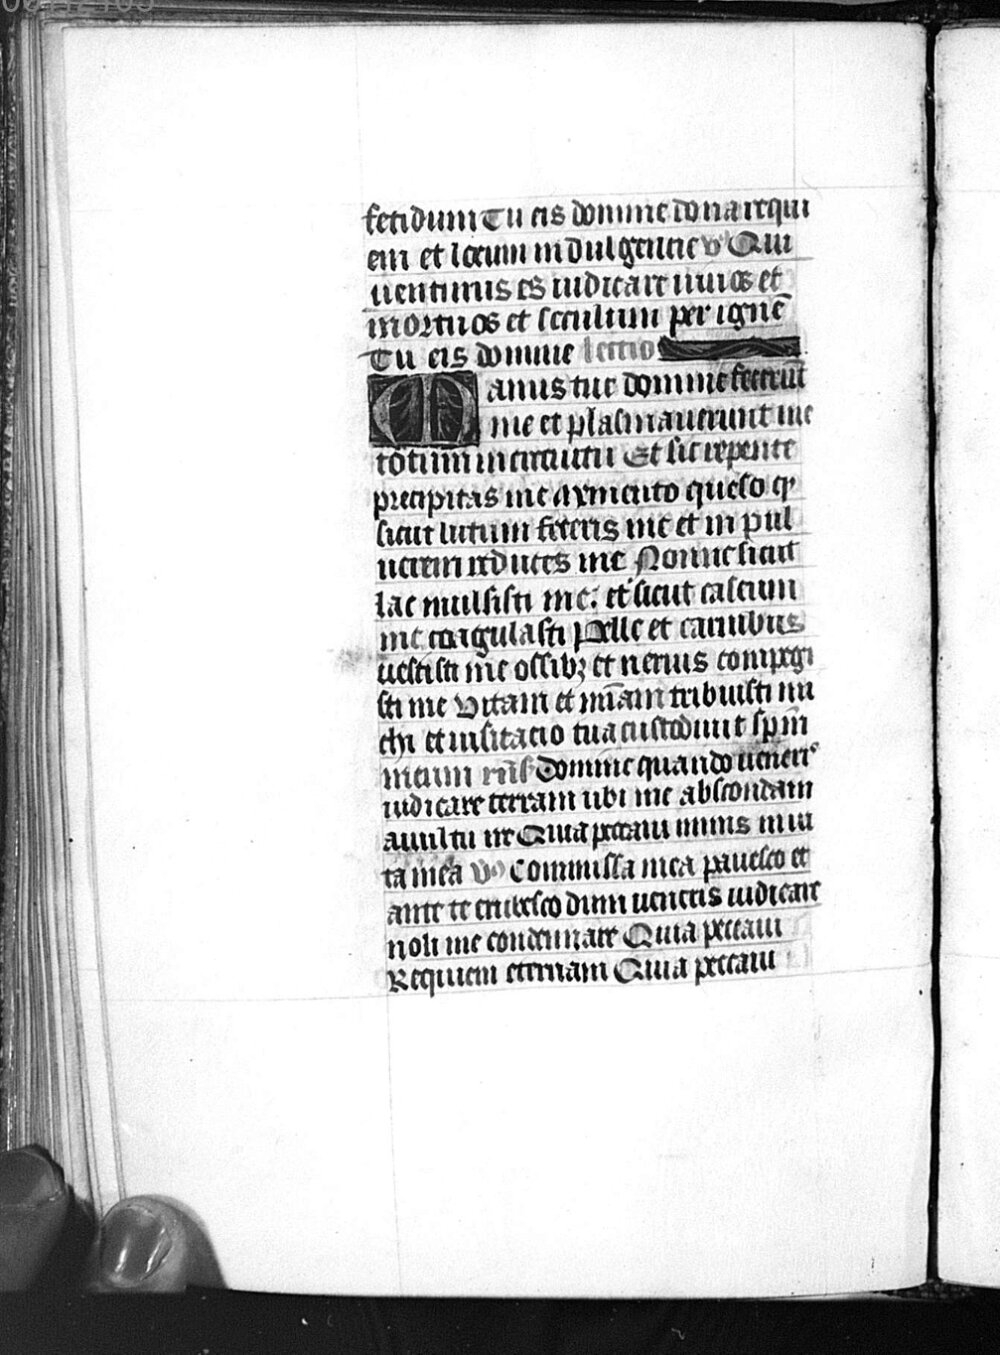 fetidum Tu eis domine dona requi
em et locum indulgencie v Qui
uenturus es iudicare uiuos et
mortuos et seculum per ignē
Tu eis domine lectio
Manus tue domine fecerūt
me et plasmauerunt me
totum in circuitu Et sic repente
precipitas me Memento queso qͥ
sicut lutum feceris me et in pul
uerem reduces me Nonne sicut
lac mulsisti me: et sicut caseum
me coagulasti Pelle et carnibus
uestisti me ossibꝫ et neruis compegi
sti me Vitam et mīam tribuisti mi
chi et uisitacio tua custodiuit spm̄
meum rns̄ Domine quando ueneris
iudicare terram ubi me abscondam
a uultu ire Quia peccaui nimis in ui
ta mea Vo Commissa mea pauesco et
ante te erubesco dum ueneris iudicare
noli me condennare Quia peccaui
Requiem eternam Quia peccaui